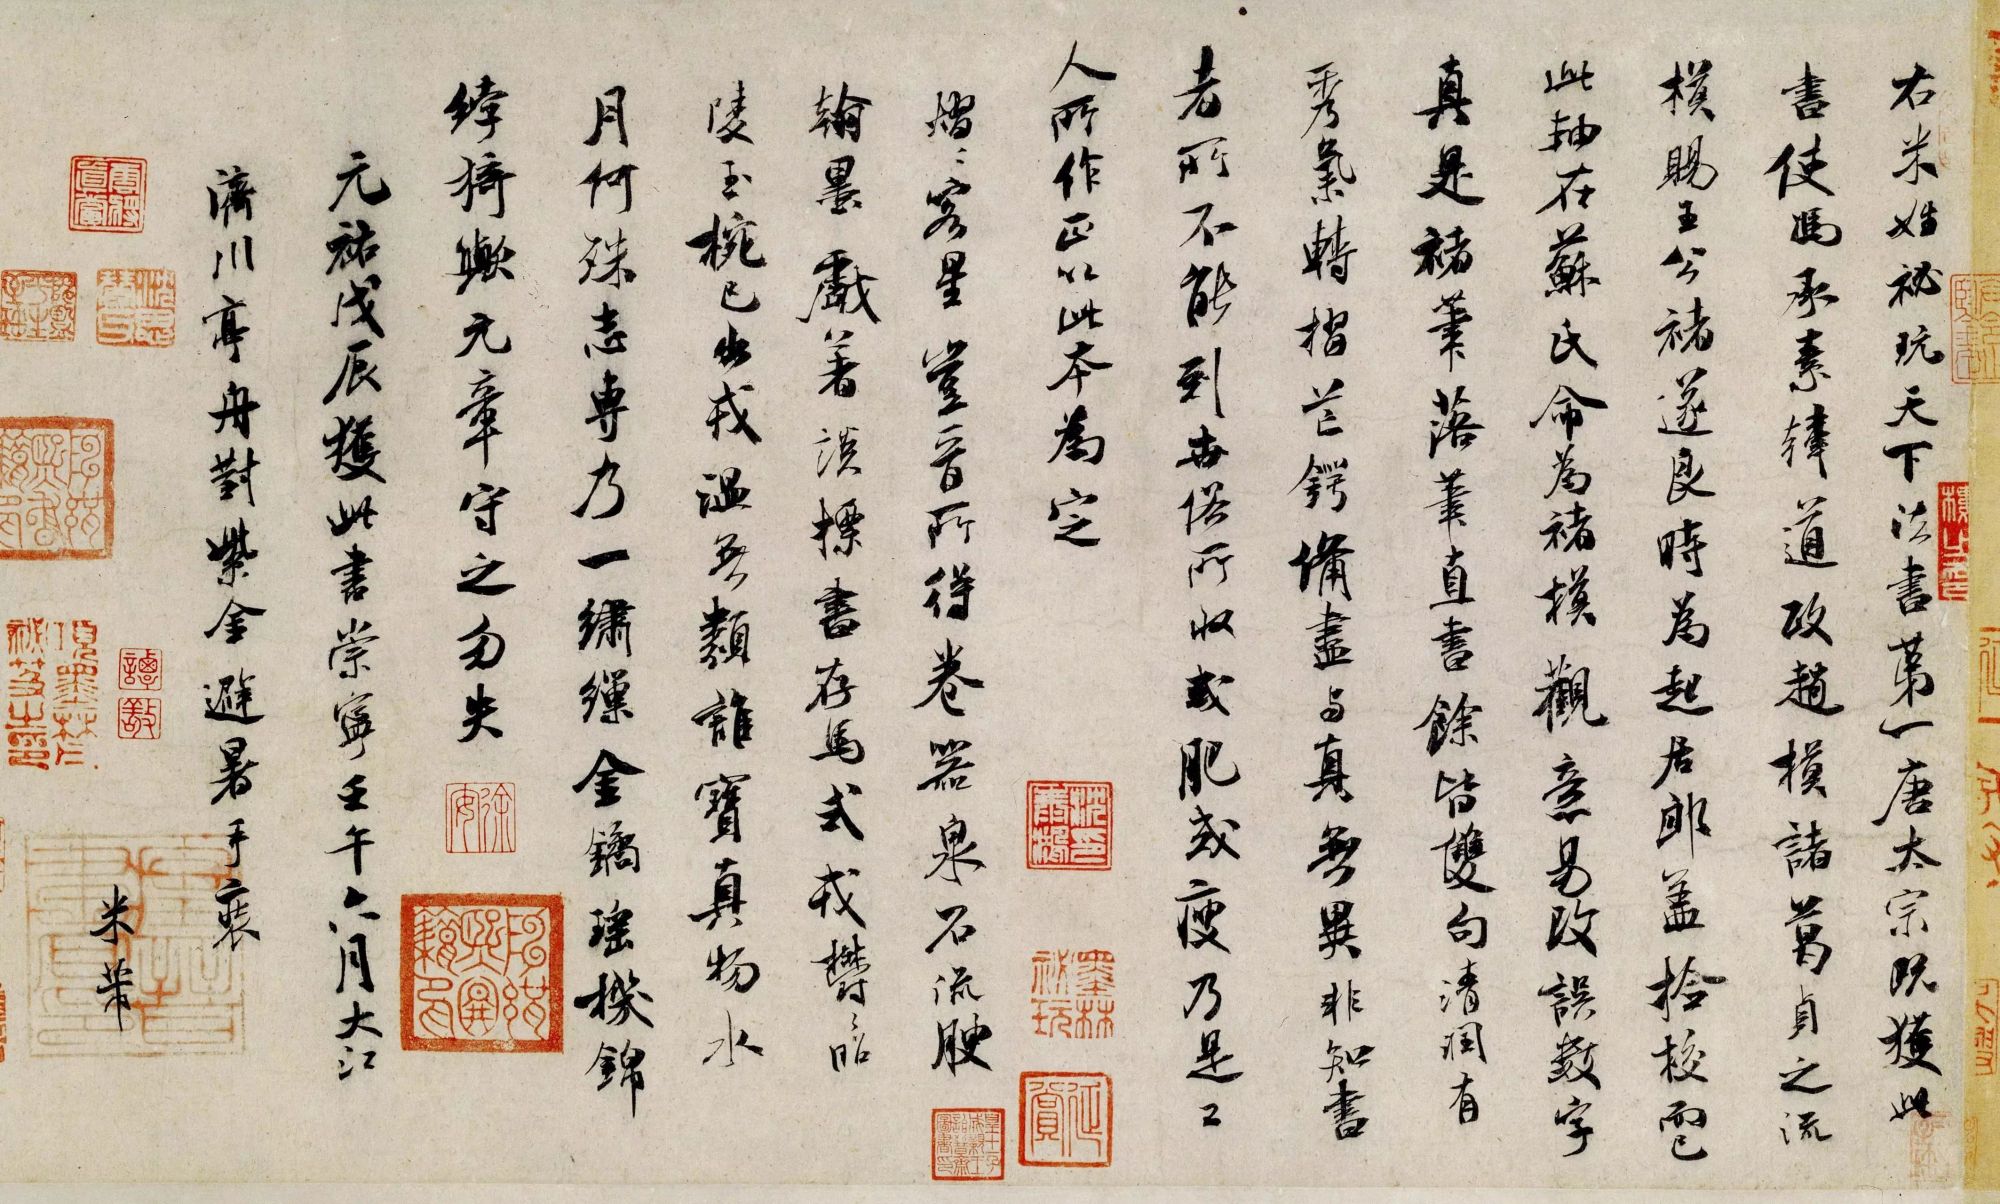 右米姓祕玩天下法書第一唐太宗既獲此
書使馮承素韓道政趙模諸葛貞之流
模賜王公褚遂良時為起居郎蓋檢校而已
此軸在蘇氏命為褚模觀意易改誤數字
真是褚筆落筆直書餘皆雙勾清潤有
秀氣轉摺芒鍔備盡与真無異非知書
者所不能到世俗所收或肥或瘦乃是工
人所作正以此本為定
熠熠客星豈晉所得卷器泉石流腴
翰墨戲著談標書存馬式戎鬱鬱昭
陵玉椀已出戎溫無類誰寶真物水
月何殊志專乃一繡繅金鐍瑤機錦
綍猗歟元章守之勿失
元祐戊辰獲此書崇寧壬午六月大江
濟川亭舟對紫金避暑手裝
米芾